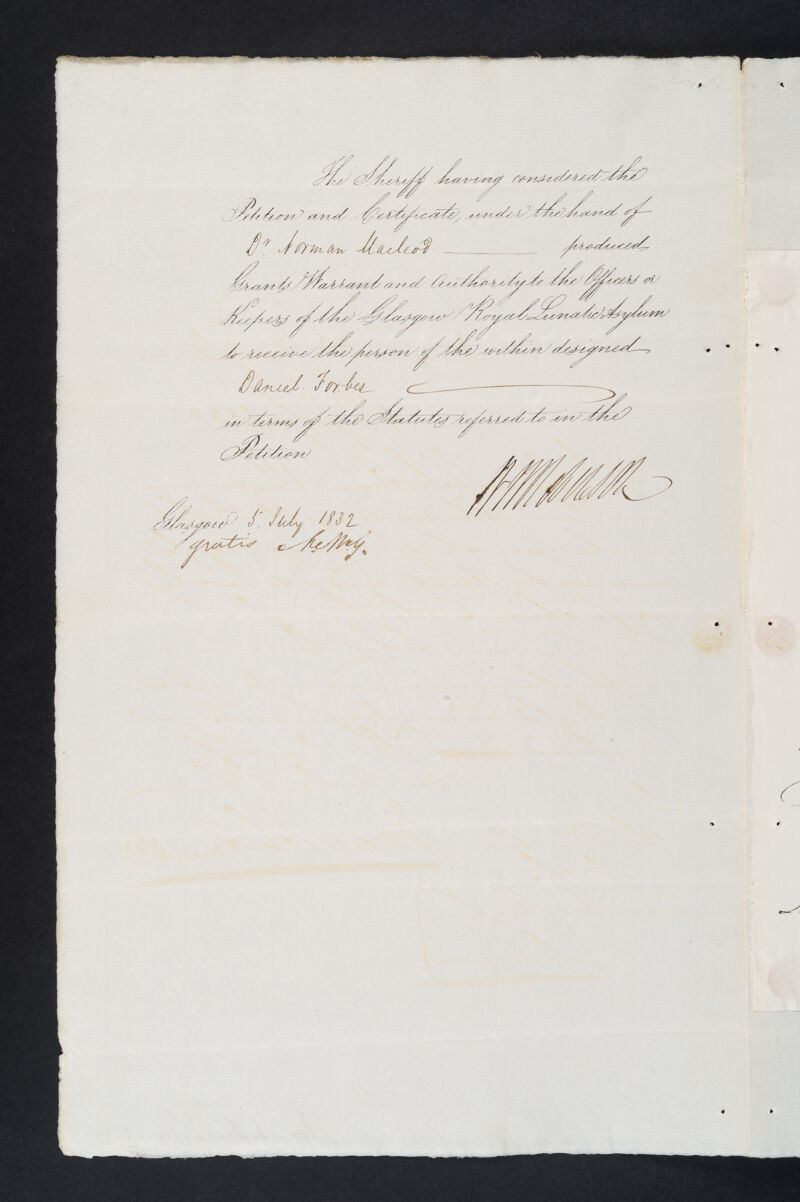 The Sheriff having considered the
Petition and Certificate, under the hand of
Dr Norman Macleod ——— produced
Grants Warrant and Authority to the Officers or
Keepers of the Glasgow Royal Lunatic Asylum
to receive the person of the within designed
Daniel Forbes
in terms of the Statutes referred to in the
Petition
Glasgow 5 July 1832
gratis